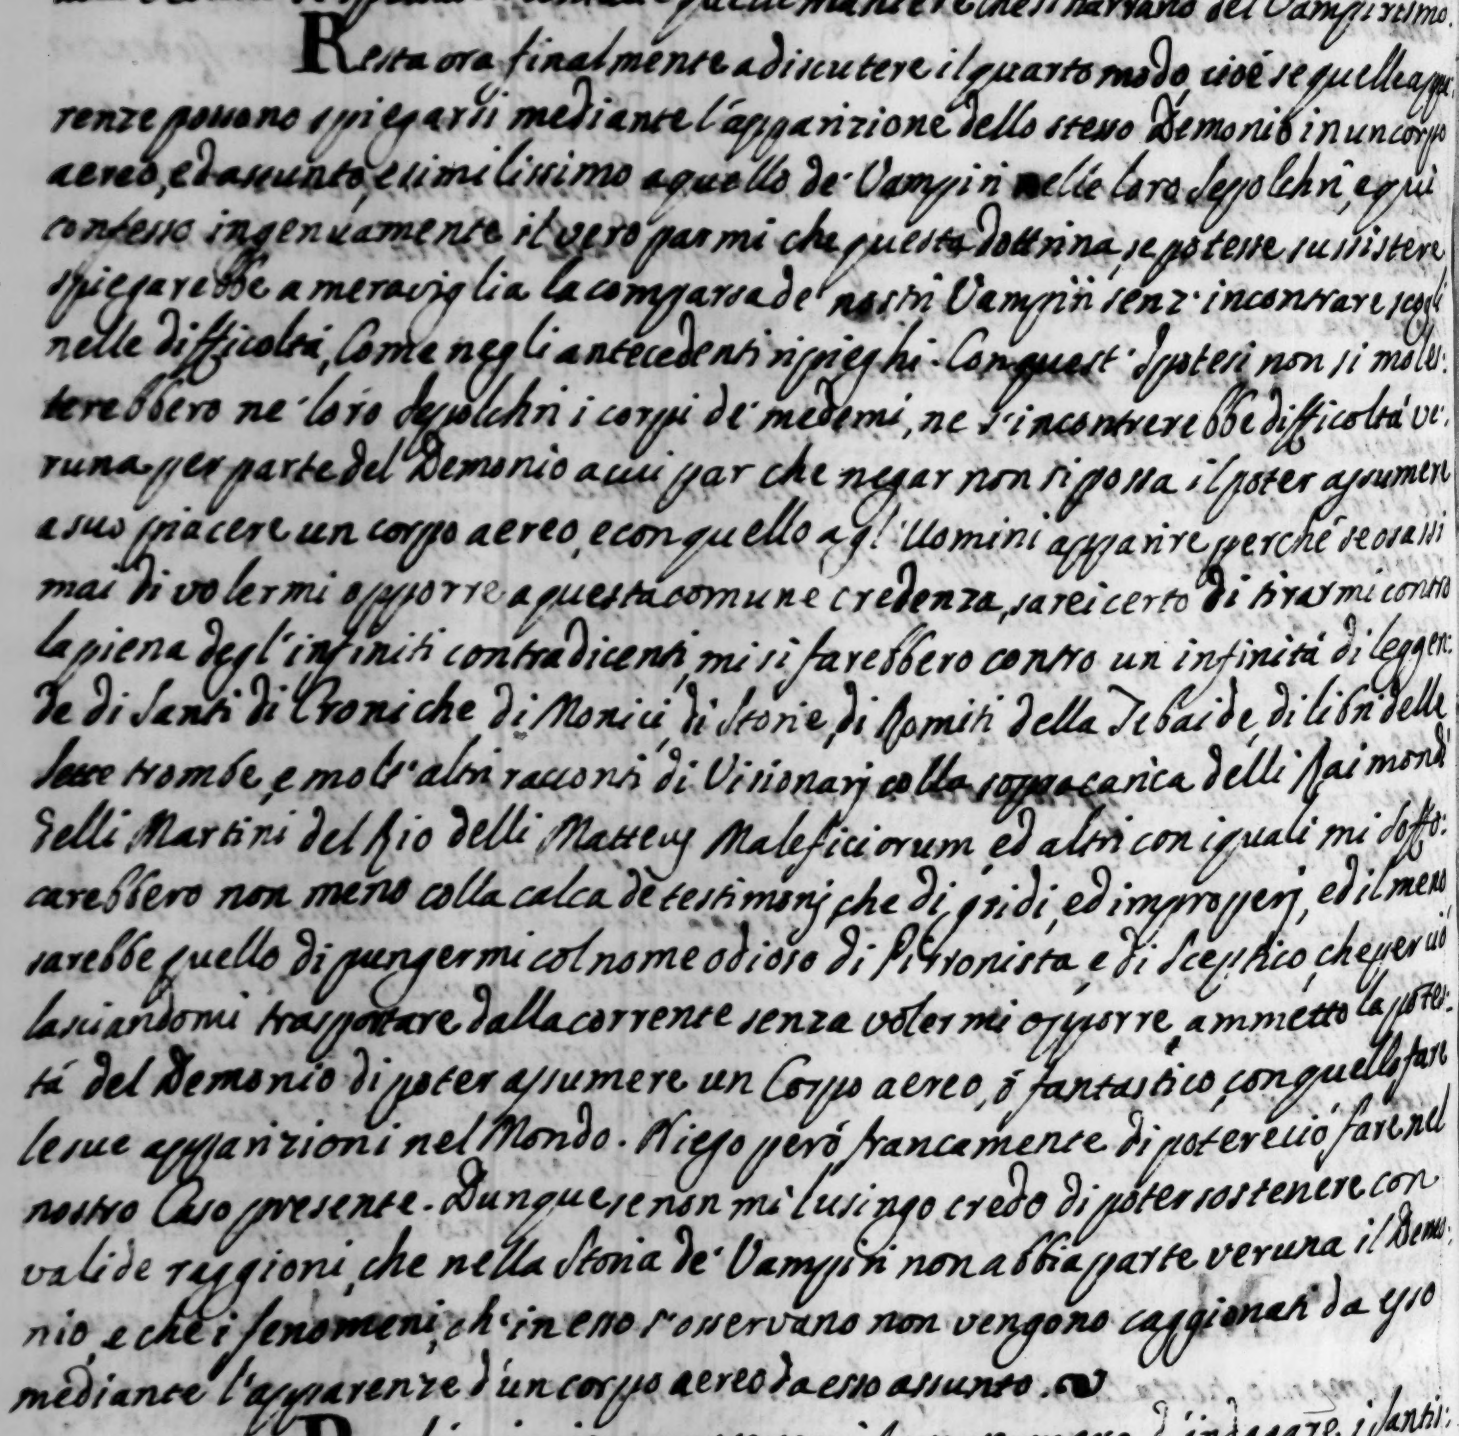 quelle maniere che si narrano del Vampirismo.
Resta ora finalmente a discutere il quarto modo, cioé se quelle appa:
renze possono spiegarsi mediante l'apparizione dello stesso Demonio in un corpo
aereo, ed assunto, e similissimo a quello de' Vampiri nelle loro Sepolchri, e quì
confesso ingenuamente il vero parmi che questa dottrina, se potesse sussistere
spiegarebbe a meraviglia la comparsa de' nostri Vampiri senz' incontrare scogli
nelle difficoltá, Come negli antecedenti ripieghi. Con quest' Ipotesi non si moles:
terebbero ne' loro Sepolchri i corpi de' medemi, ne s'incontrerebbe difficoltá ve:
runa per parte del Demonio a cui par che negar non si possa il poter assumere
a suo piacere un corpo aereo, e con quello agl' Uomini apparire perché se osassi
mai di volermi opporre a questa comune credenza, sarei certo di tirarmi contro
la piena degl' infiniti contradicenti, mi si farebbero contro un infinitá di leggen:
de di Santi di Croniche di Monici, di Storie, di Romiti della Tebaide, di libri delle
Sette trombe, e molt' altri racconti di Visionarj colla sopracarica delli Raimondi
Delli Martini del Rio delli Matteus Maleficiorum ed altri con i quali mi soffo:
carebbero non meno colla calca de testimonj che di gridi, ed improperj, ed il meno
sarebbe quello di pungermi col nome odioso di Pirronista, e di Sceptico, che perció
lasciandomi trasportare dalla corrente senza volermi opporre, ammetto la potes:
tá del Demonio di poter assumere un Corpo aereo, ó fantastico, con quello fare
le sue apparizioni nel Mondo. Niego peró francamente di potere ció fare nel
nostro Caso presente. Dunque se non mi lusingo credo di poter sostenere con
valide raggioni, che nella Storia de' Vampiri non abbia parte veruna il Demo:
nio, e che i fenomeni, ch' in esso s'osservano non vengono caggionati da esso
mediante l'apparenze d'un corpo aereo da esso assunto.
d'indagare, i Santis: